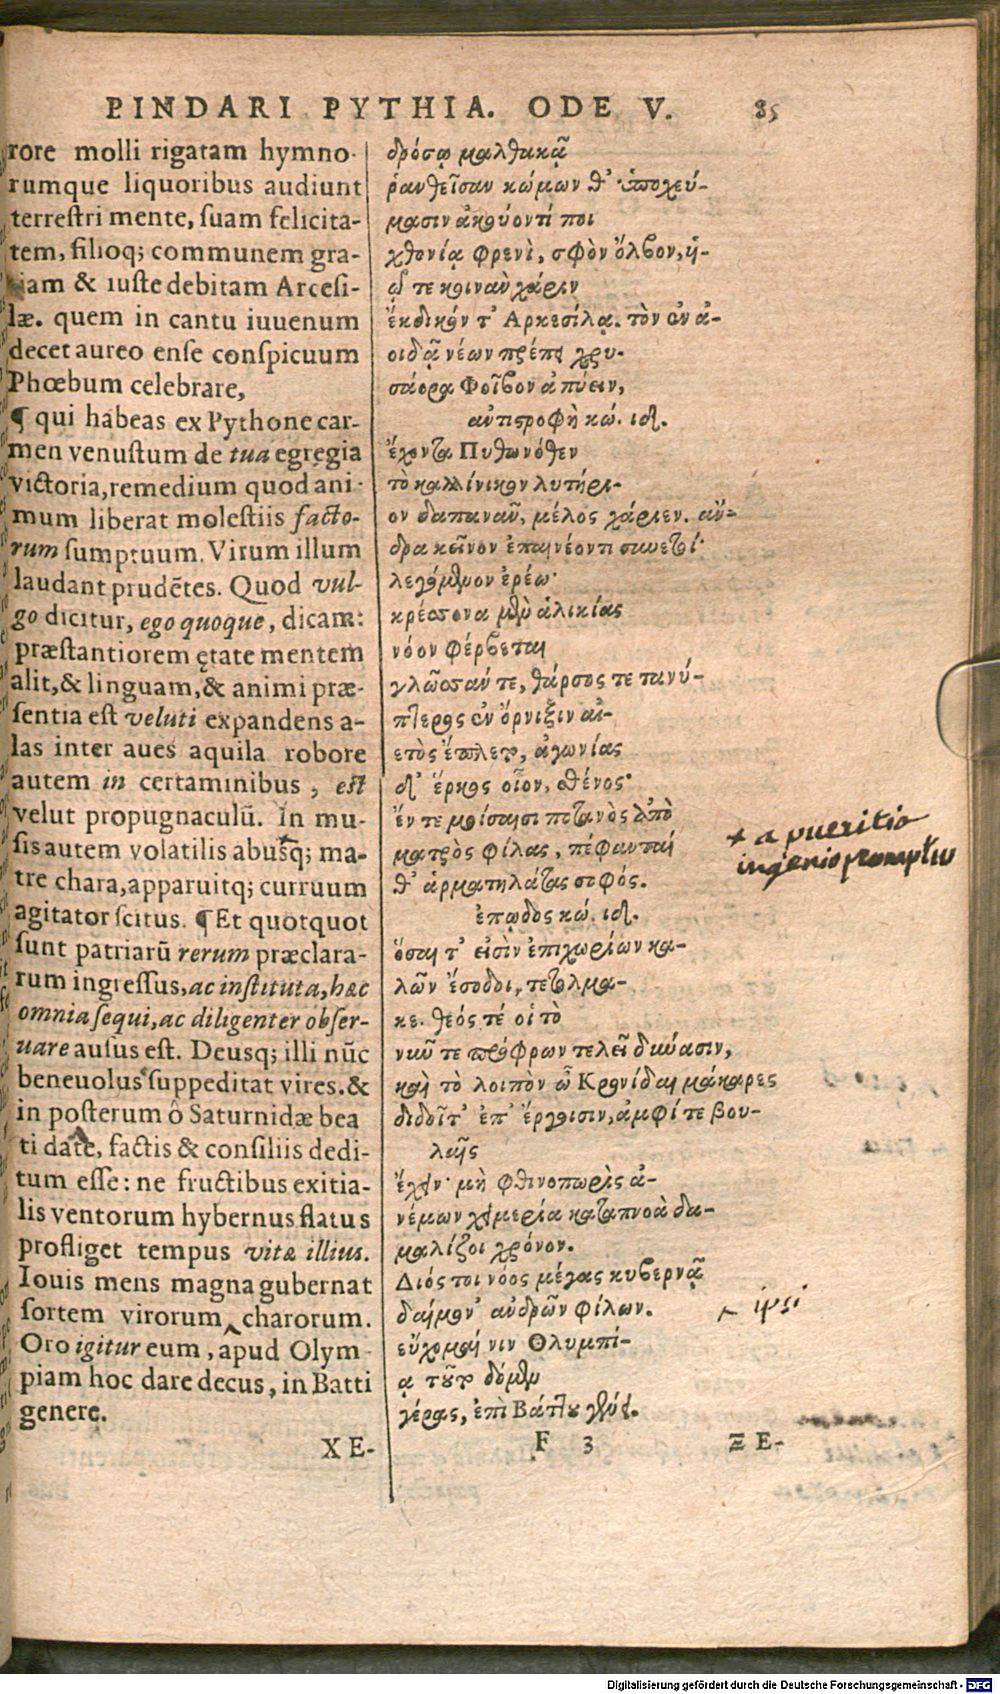 PINDARI PYTHIA. ODE V. 85
rore molli rigatam hymno-
rumque liquoribus audiunt
terrestri mente, suam felicita-
tem, filioq; communem gra-
tiam & iuste debitam Arcesi-
læ. quem in cantu iuuenum
decet aureo ense conspicuum
Phœbum celebrare,
¶ qui habeas ex Pythone car-
men venustum de tua egregia
victoria, remedium quod ani-
mum liberat molestiis facto-
rum sumptuum. Virum illum
laudant prudẽtes. Quod vul-
go dicitur, ego quoque, dicam:
præstantiorem ętate mentem
alit, & linguam, & animi præ-
sentia est veluti expandens a-
las inter aues aquila robore
autem in certaminibus, est
velut propugnaculũ. In mu-
sis autem volatilis abusq; ma-
tre chara, apparuitq; curruum
agitator scitus. ¶ Et quotquot
sunt patriarũ rerum præclara-
rum ingressus, ac instituta, hæc
omnia sequi, ac diligenter obser-
uare ausus est. Deusq; illi nũc
beneuolus suppeditat vires. &
in posterum ô Saturnidæ bea
ti date, factis & consiliis dedi-
tum esse: ne fructibus exitia-
lis ventorum hybernus flatus
profliget tempus vitæ illius.
Iouis mens magna gubernat
sortem virorum charorum.
Oro igitur eum, apud Olym-
piam hoc dare decus, in Batti
genere.
XE-
δρόσῳ μαλθακᾷ
ῥανθεῖσαν κώμων θ' ὑποχεύ-
μασιν ἀκούοντί ποι
χθονίᾳ φρενὶ, σφὸν ὄλβον, ὑ-
ῷ τε κοιναὺ χάριν
ἔκδικόν τ' Αρκεσίλᾳ. τὸν ἐν ἀ-
οιδᾷ νέων πρέπει χρυ-
σάορα Φοῖβον ἀπύειν,
αντιστροφὴ κώ. ιδ.
ἔχοντα Πυθωνόθεν
τὸ καλλίνικον λυτήρι-
ον δαπαναῦ, μέλος χάριεν. ἄν-
δρα κεῖνον ἐπαινέοντι συνετοί·
λεγόμενον ἐρέω·
κρέσσονα μὲν ἁλικίας
νόον φέρβεται
γλῶσσάν τε, θάρσος τε τανύ-
πτερος ἐν ὄρνιξιν αἰ-
ετὸς ἔπλετο, ἀγωνίας
δ' ἕρκος οἷον, σθένος·
ἔν τε μοίσαισι ποτανὸς ἀπὸ
ματρὸς φίλας, πέφανταί
θ' ἁρματηλάτας σοφός.
ἐπῳδος κώ. ιδ.
ὅσαι τ' εἰσὶν ἐπιχωρίων κα-
λῶν ἔσοδοι, τετόλμα-
κε. θεός τέ οἱ τὸ
νῦν τε πρόφρων τελεῖ δύνασιν,
καὶ τὸ λοιπὸν ὦ Κρονίδαι μάκαρες
διδοῖτ' ἐπ' ἔργοισιν, ἀμφί τε βου-
λαῖς
ἔχειν· μὴ φθινοπωρὶς ἀ-
νέμων χειμερία καταπνοὰ δα-
μαλίζοι χρόνον.
Διός τοι νόος μέγας κυβερνᾷ
δαίμον' ἀνδρῶν φίλων.
εὔχομαί νιν Ολυμπί-
ᾳ τοῦτο δόμεν
γέρας, ἐπὶ Βάττου γένει.
F 3
ΞΕ-
+ a pueritia
ingenio promptiu
^ ipsi
Digitalisierung gefördert durch die Deutsche Forschungsgemeinschaft - DFG